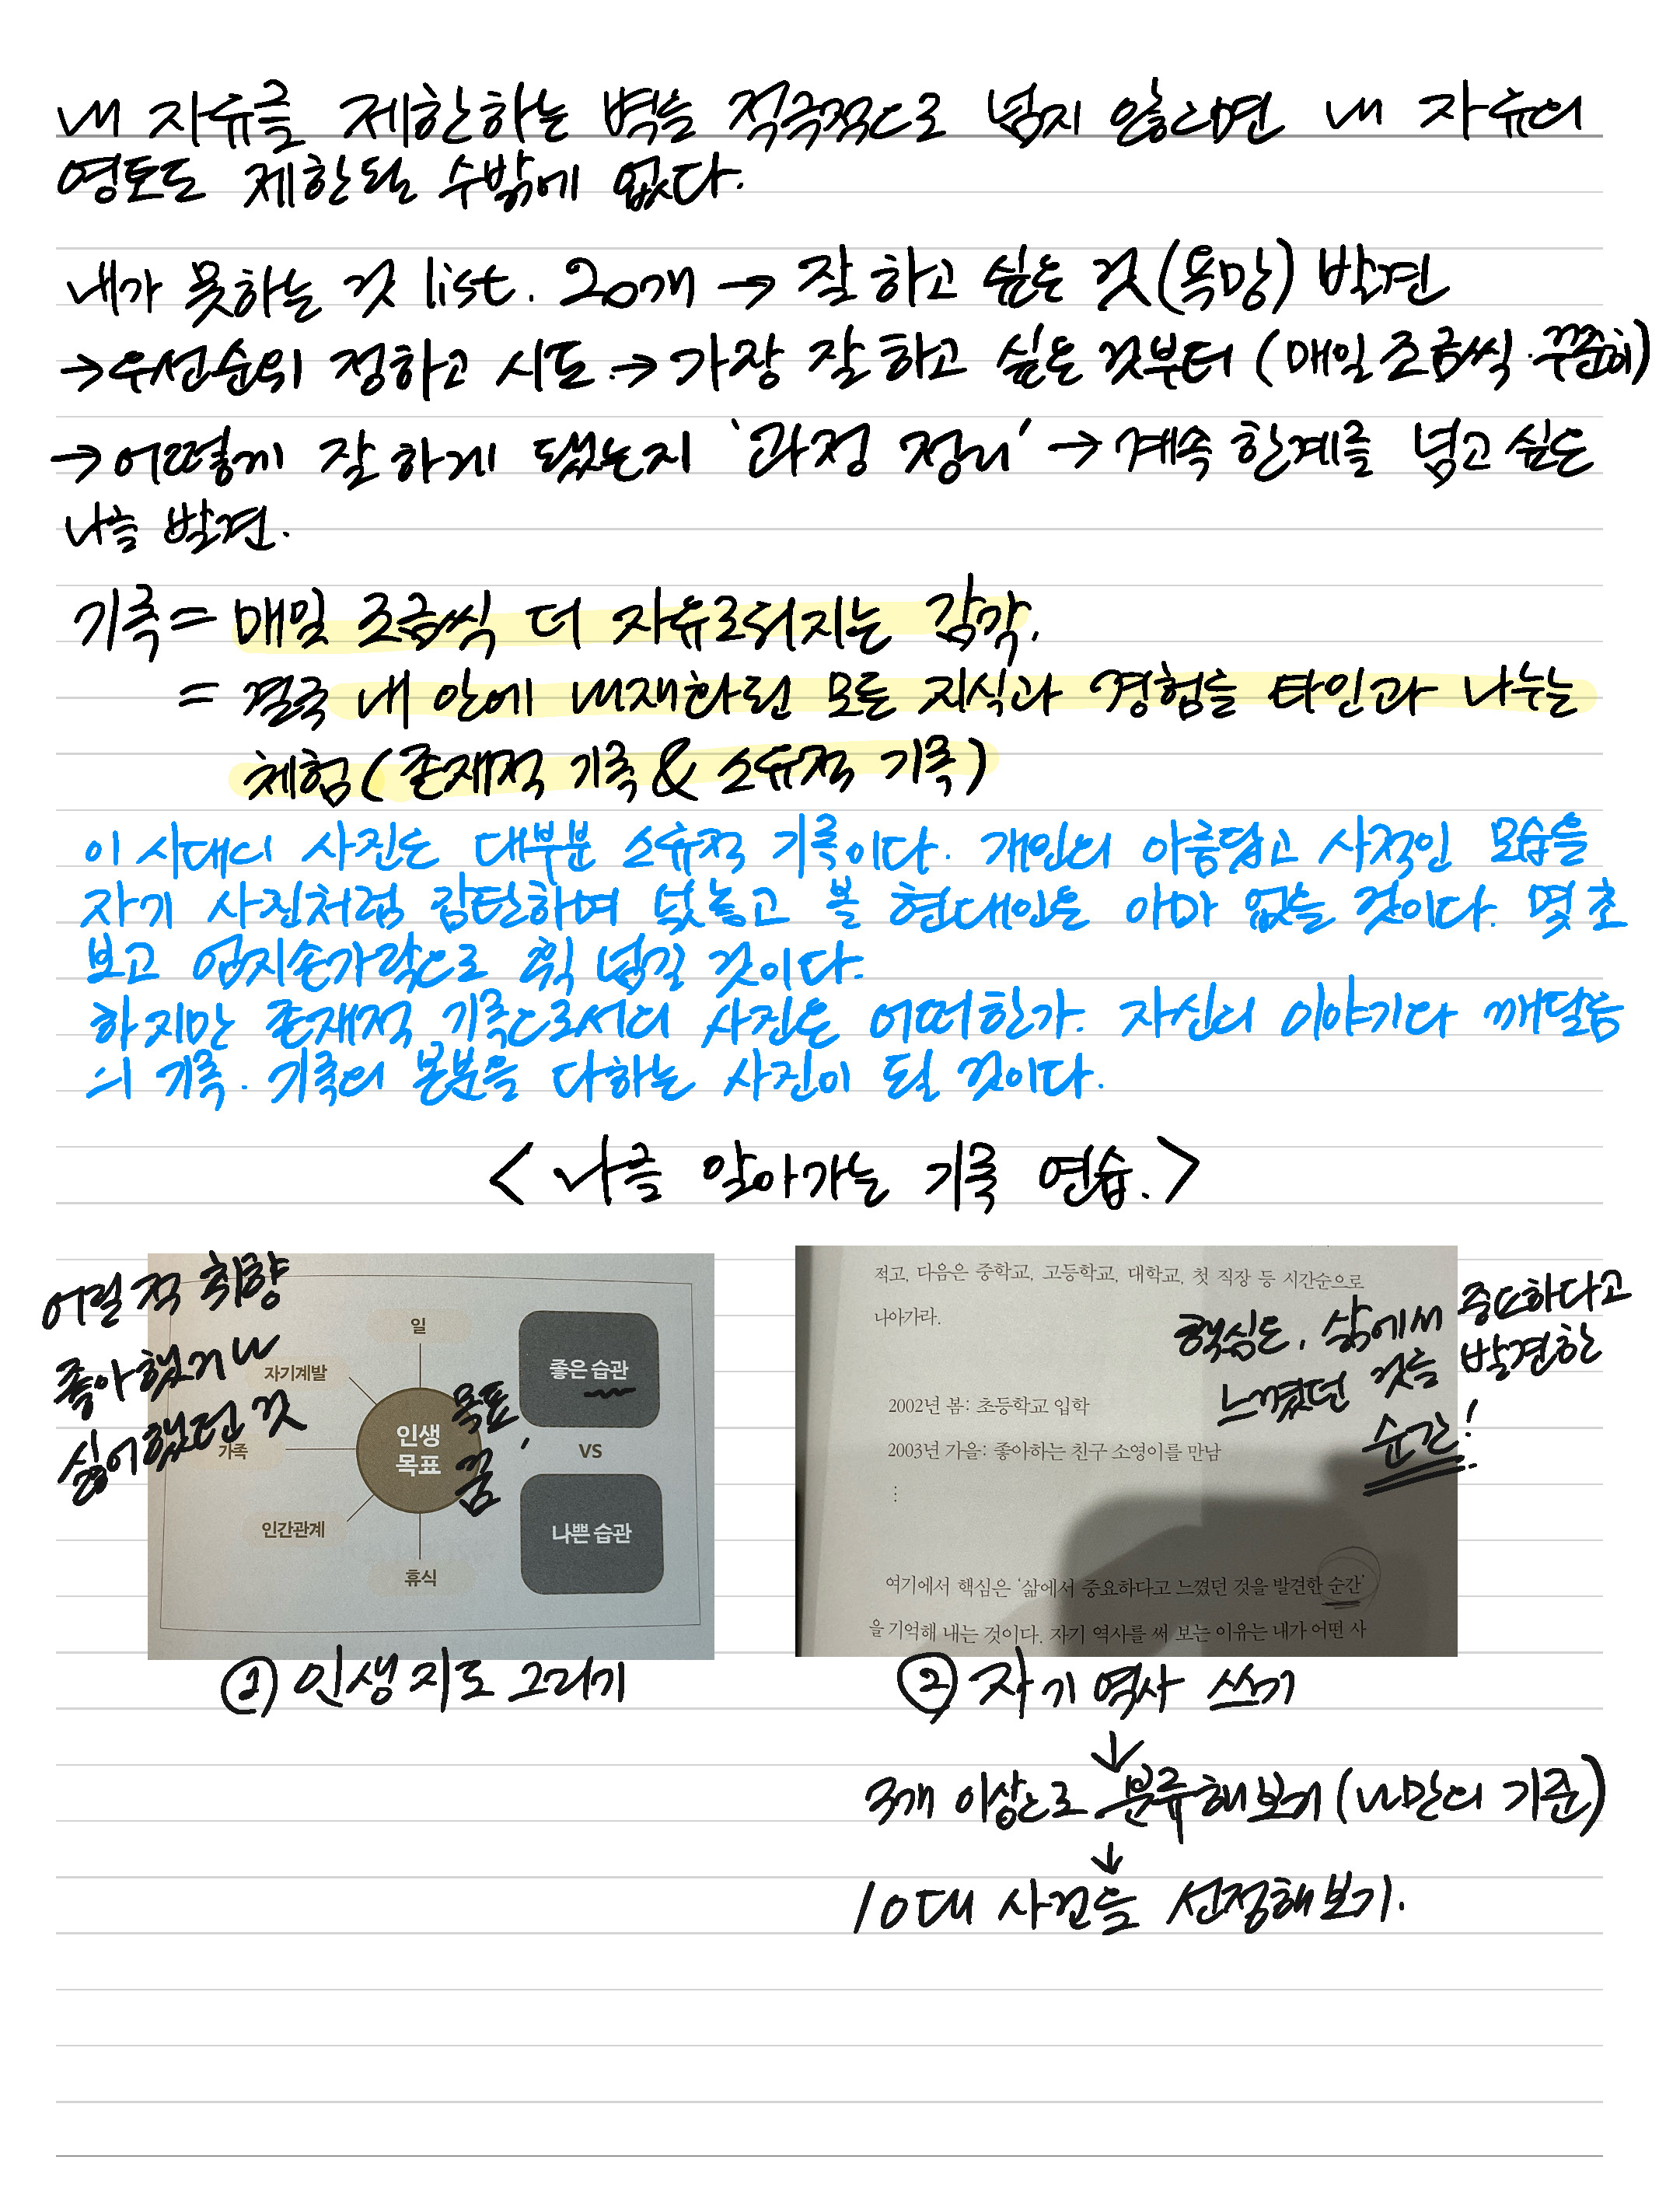 내 자유를 제한하는 벽을 적극적으로 넘지 않으면 내 자유의
영토도 제한될 수밖에 없다.
내가 못하는 것 list. 20개 → 잘 하고 싶은 것(욕망) 발견
→우선순위 정하고 시도.→가장 잘 하고 싶은 것부터 (매일 조금씩·꾸준히)
→어떻게 잘 하게 됐는지 '과정 정리' → 계속 한계를 넘고 싶은
나를 발견.
기록 = 매일 조금씩 더 자유로워지는 감각.
= 결국 내 안에 내재화된 모든 지식과 경험을 타인과 나누는
체험 (존재적 기록 & 소유적 기록)
이 시대의 사진은 대부분 소유적 기록이다. 개인의 아름답고 사적인 모습을
자기 사진처럼 감탄하며 넋놓고 볼 현대인은 아마 없을 것이다. 몇 초
보고 엄지손가락으로 휙 넘길 것이다.
하지만 존재적 기록으로서의 사진은 어떠한가. 자신의 이야기다 깨달음
의 기록. 기록의 본분을 다하는 사진이 될 것이다.
< 나를 알아가는 기록 연습. >
어릴 적 취향
좋아했거나
싫어했던 것
일
자기계발
가족
인간관계
휴식
인생
목표
목표,
꿈
좋은 습관
VS
나쁜 습관
① 인생 지도 그리기
적고, 다음은 중학교, 고등학교, 대학교, 첫 직장 등 시간순으로
나아가라.
핵심은, 삶에서 중요하다고
느꼈던 것을 발견한
순간!
2002년 봄: 초등학교 입학
2003년 가을: 좋아하는 친구 소영이를 만남
⋮
여기에서 핵심은 '삶에서 중요하다고 느꼈던 것을 발견한 순간'
을 기억해 내는 것이다. 자기 역사를 써 보는 이유는 내가 어떤 사
② 자기 역사 쓰기
↓
3개 이상으로 분류해보기 (나만의 기준)
↓
10대 사건을 선정해보기.